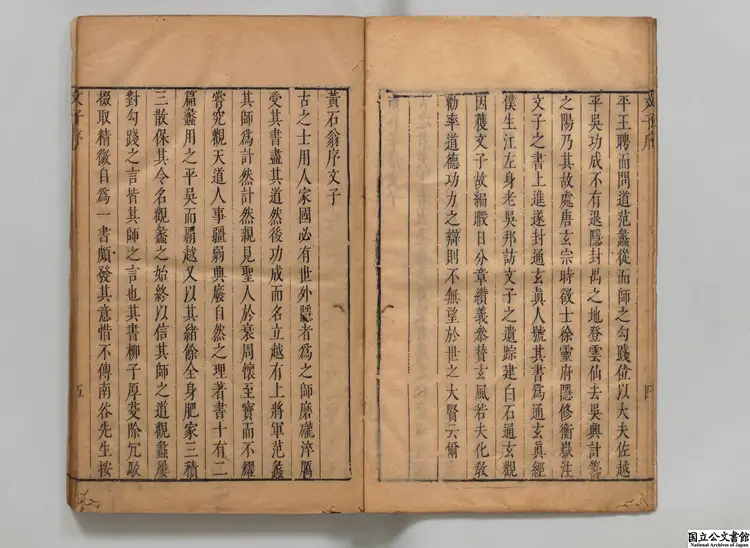 文子序
平王聘而問道范蠡從而師之勾踐位以大夫佐越
平吳功成不有退隱封禺之地登雲仙去吳興計籌
之陽乃其故處唐玄宗時徵士徐靈府隱修衡嶽注
文子之書上進遂封通玄真人號其書爲通玄真經
僕生江左身老吳邦訪文子之遺踪建白石通玄觀
因獲文子故編暇日分章纘義叅贊玄風若夫化敎
勸率道德功力之辯則不無望於世之大賢云爾
黃石翁序文子
古之士用人家國必有世外隱者爲之師磨礲淬厲
受其書盡其道然後功成而名立越有上將軍范蠡
其師爲計然計然親見聖人於衰周懷至寶而不耀
嘗究觀天道人事彊弱興廢自然之理著書十有二
篇蠡用之平吳而霸越又以其緒餘全身肥家三積
三散保其令名觀蠡之始終以信其師之道觀蠡屢
對勾踐之言皆其師之言也其書柳子厚芟除冗駁
掇取精微自爲一書頗發其意惜不傳南谷先生按
文子序
五
国立公文書館
National Archives of Japan